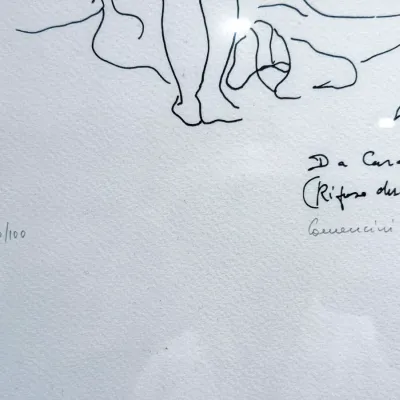 Da Cara
(Rifuso du
/100
Comencini